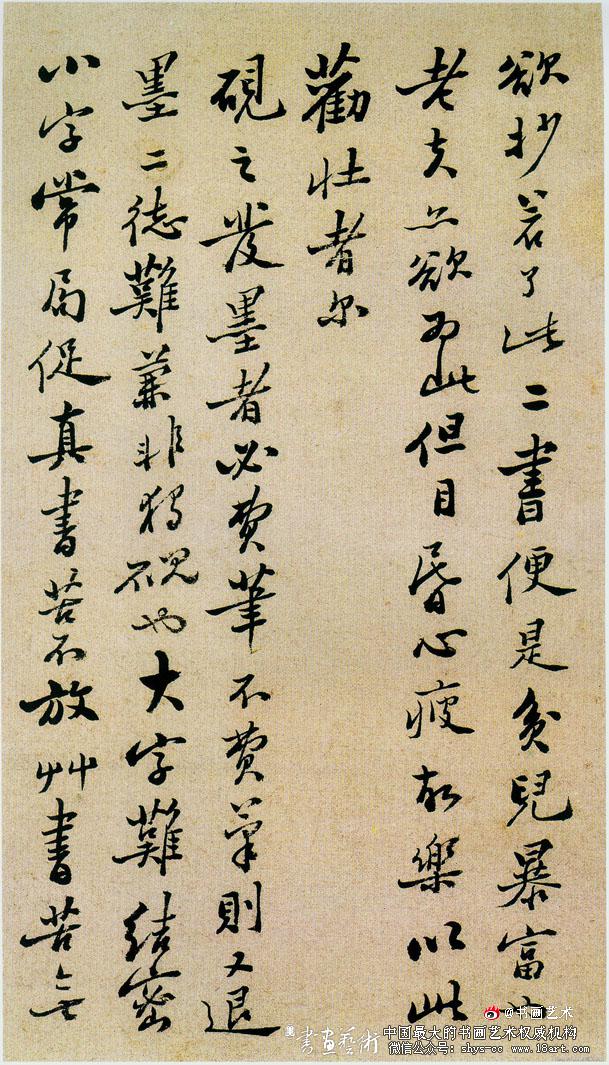 欲抄若了此二書便是貧兒暴富也
老夫亦欲為此但目昏心疲故樂以此
勸壯者尔
硯之發墨者必費筆不費筆則又退
墨二德難兼非獨硯也大字難結密
小字常局促真書苦不放艸書苦無
@书画艺术
書畫藝術
中国最大的书画艺术权威机构
微信公众号: shys-cc www.18art.com